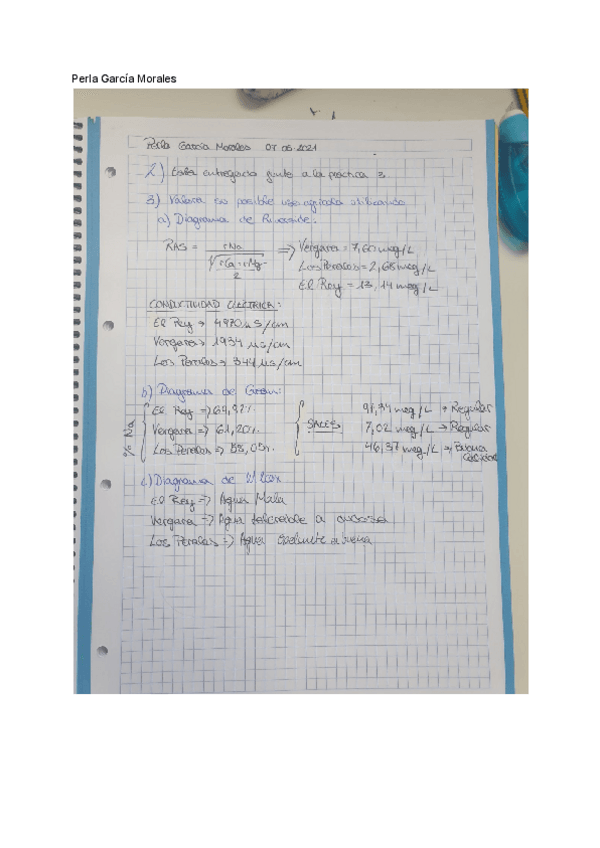 Perla García Morales
Perla García Morales 07 06 2021
2) Esta entregado junto a la práctica 3
3) Valora su posible uso agrícola utilizando
a) Diagrama de Riverside:
RAS = rNa / √ rCa + rMg / 2 => Vergara = 7,60 meq/L
Los Perales = 2,68 meq/L
El Rey = 13,14 meq/L
CONDUCTIVIDAD ELECTRICA:
El Rey → 4970 µS/cm
Vergara → 1934 µS/cm
Los Perales → 344 µS/cm
b) Diagrama de
% Na
El Rey => 69,87%
Vergara => 61,20%
Los Perales => 55,05%
SALES
91,34 meq/L → Regular
7,02 meq/L → Regular
46,37 meq/L → Buena
c) Diagrama de Wilcox
El Rey => Agua Mala
Vergara => Agua a dudosa
Los Perales => Agua a buena